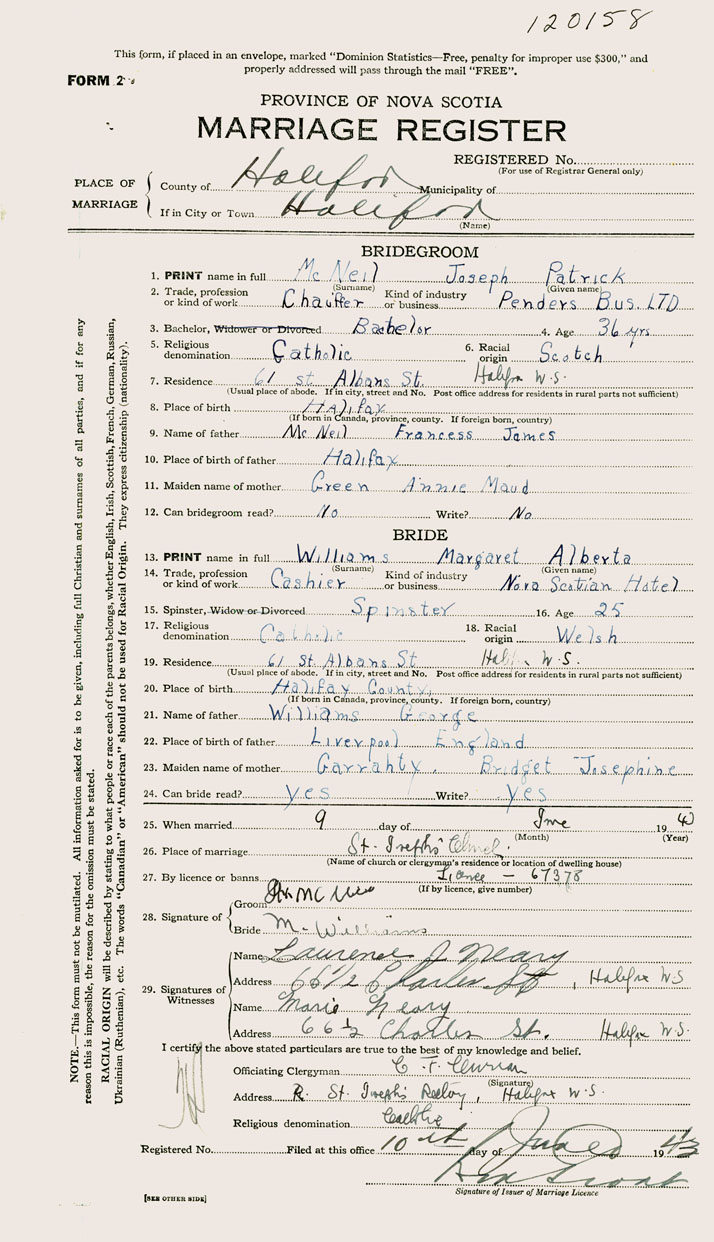 120158
This form, if placed in an envelope, marked “Dominion Statistics—Free, penalty for improper use $300,” and
properly addressed will pass through the mail “FREE”.
FORM 2
PROVINCE OF NOVA SCOTIA
MARRIAGE REGISTER
REGISTERED No.
(For use of Registrar General only)
PLACE OF MARRIAGE
County of Halifax Municipality of
If in City or Town Halifax
(Name)
BRIDEGROOM
1. PRINT name in full McNeil Joseph Patrick
(Surname) (Given name)
2. Trade, profession or kind of work Chauffer Kind of industry or business Penders Bus. LTD
3. Bachelor, Widower or Divorced Bachelor 4. Age 36 yrs
5. Religious denomination Catholic 6. Racial origin Scotch
7. Residence 61 st Albans St. Halifax W.S.
(Usual place of abode. If in city, street and No. Post office address for residents in rural parts not sufficient)
8. Place of birth Halifax
(If born in Canada, province, county. If foreign born, country)
9. Name of father McNeil Francess James
10. Place of birth of father Halifax
11. Maiden name of mother Green Annie Maud
12. Can bridegroom read? No Write? No
BRIDE
13. PRINT name in full Williams Margaret Alberta
(Surname) (Given name)
14. Trade, profession or kind of work Cashier Kind of industry or business Nova Scotian Hotel
15. Spinster, Widow or Divorced Spinster 16. Age 25
17. Religious denomination Catholic 18. Racial origin Welsh
19. Residence 61 St. Albans St W.S.
(Usual place of abode. If in city, street and No. Post office address for residents in rural parts not sufficient)
20. Place of birth Halifax County,
(If born in Canada, province, county. If foreign born, country)
21. Name of father Williams George
22. Place of birth of father Liverpool England
23. Maiden name of mother Garrahty. Bridget Josephine
24. Can bride read? yes Write? yes
25. When married 9 day of June 19
(Month) (Year)
26. Place of marriage St. Joseph's
(Name of church or clergyman's residence or location of dwelling house)
27. By licence or banns 67378
(If by licence, give number)
28. Signature of
Groom
Bride M. Williams
29. Signatures of Witnesses
Name Laurence J Neary
Address 66 1/2 Charles St, Halifax W.S
Name Marie Neary
Address 66 1/2 Charles St. Halifax W.S.
I certify the above stated particulars are true to the best of my knowledge and belief.
Officiating Clergyman C. F. Curran
(Signature)
Address St. Joseph's Rectory, Halifax W.S.
Religious denomination Catholic
Registered No. Filed at this office 10 th day of June 19 43
Signature of Issuer of Marriage Licence
[SEE OTHER SIDE]
NOTE.—This form must not be mutilated. All information asked for is to be given, including full Christian and surnames of all parties, and if for any
reason this is impossible, the reason for the omission must be stated.
RACIAL ORIGIN will be described by stating to what people or race each of the parents belongs, whether English, Irish, Scottish, French, German, Russian,
Ukrainian (Ruthenian), etc. The words “Canadian” or “American” should not be used for Racial Origin. They express citizenship (nationality).